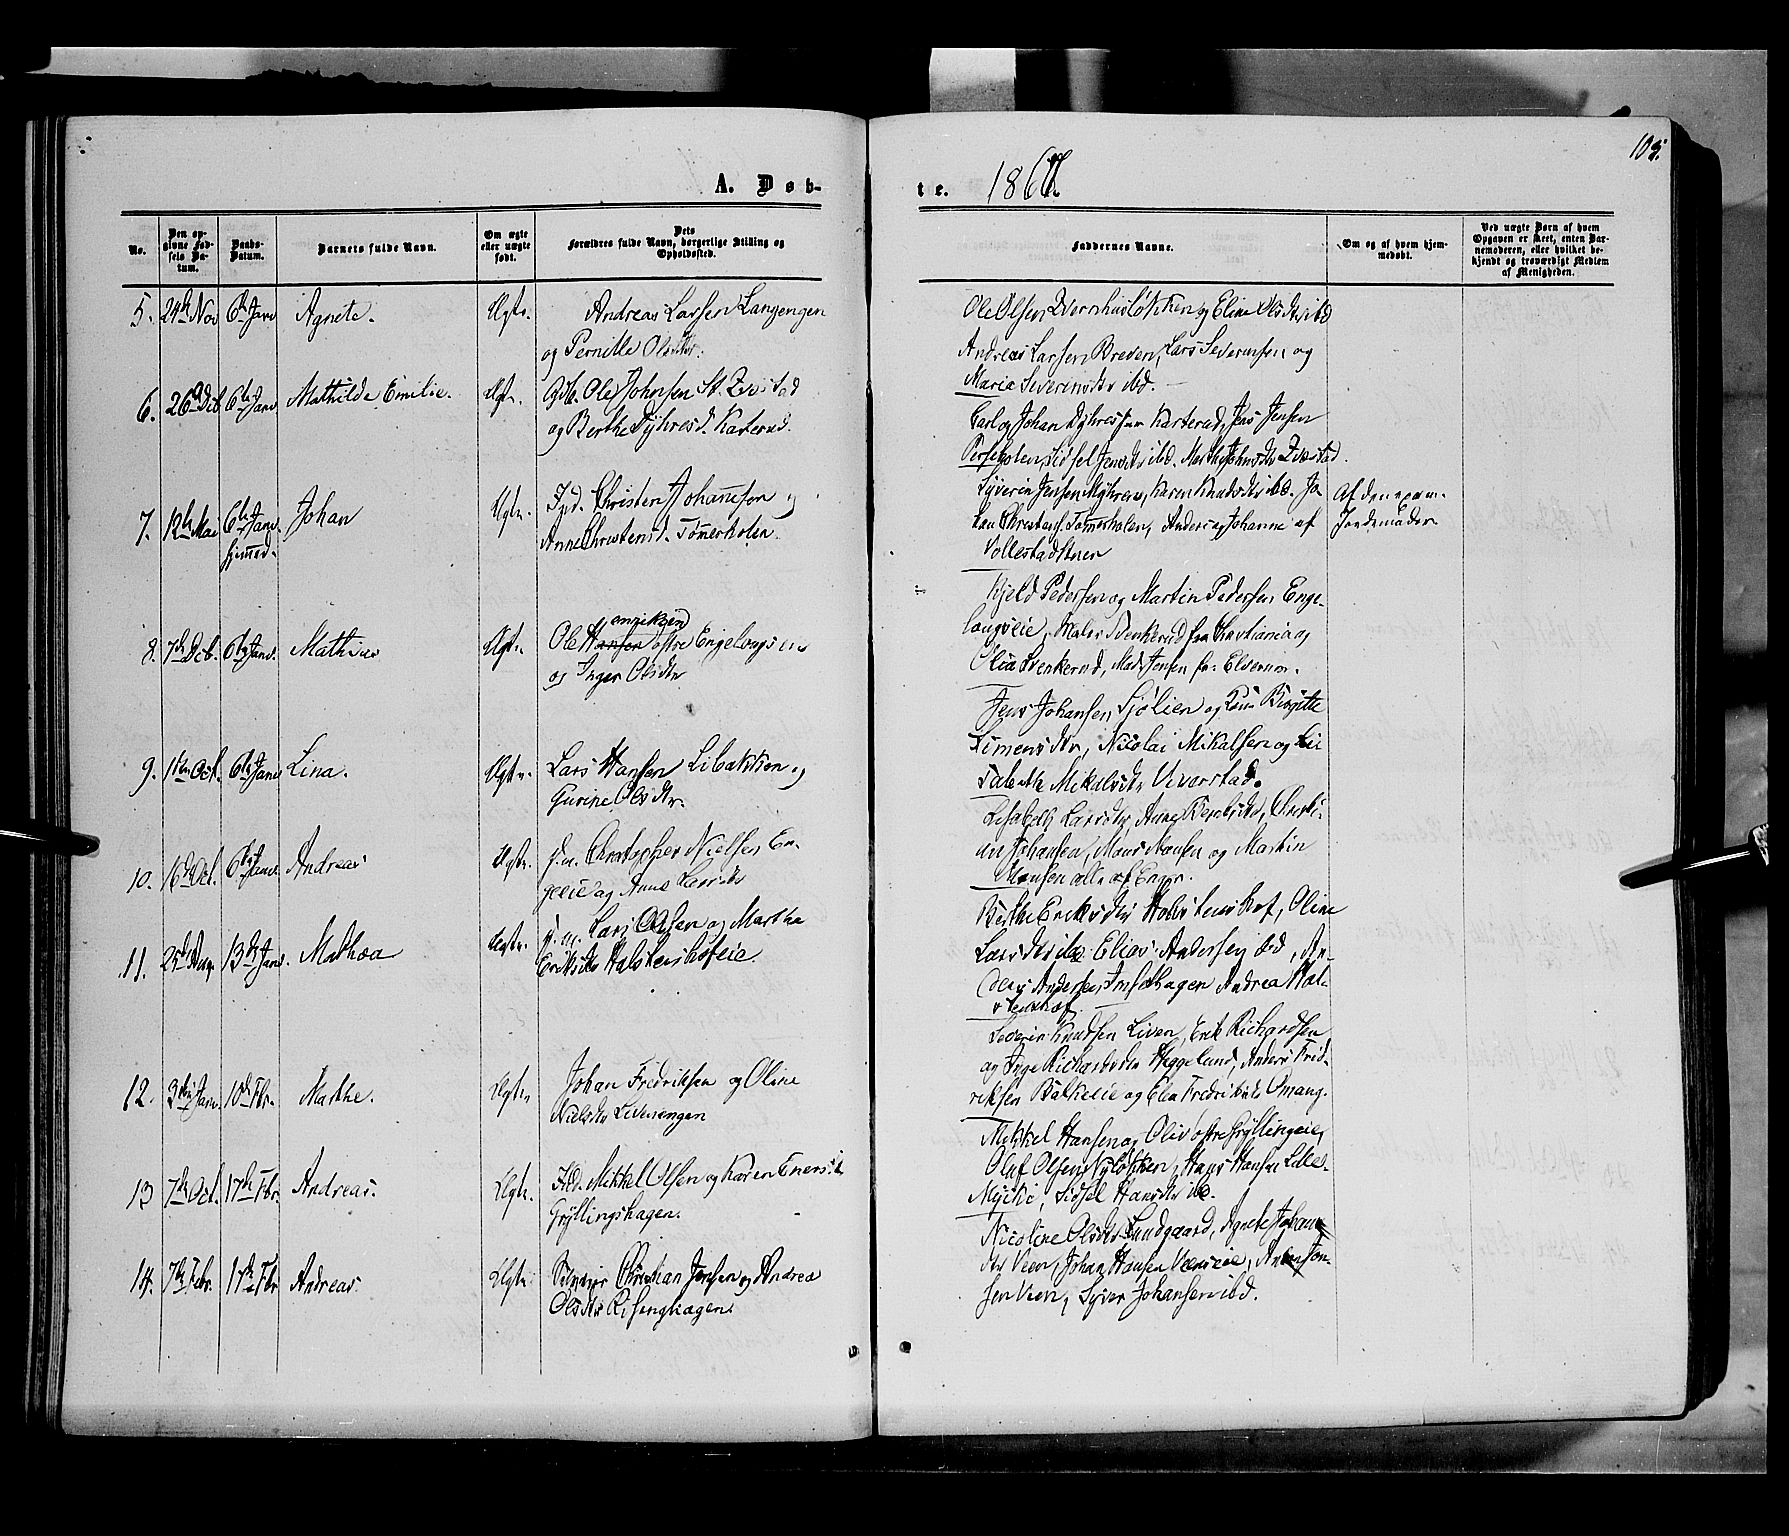 105.
A. Døb-
te. 1867.
No.
Den op-
givne Fød-
sels Da-
tum.
Daabs-
Datum.
Barnets fulde Navn.
Om ægte
eller uægte
født.
Dets
Forældres fulde Navn, borgerlige Stilling og
Opholdssted.
Faddernes Navne.
Om og af hvem hjem-
medøbt.
Ved uægte Børn af hvem
Opgaven er skeet, enten Bar-
nemoderen, eller hvilket be-
kjendt og troværdigt Medlem
af Menigheden.
5. 24de Nov 6te Janr Agnete. Ægte. Andreas Larsen Langengen
og Pernille Olsdtr.
Ole Olsen og Eline Olsdtr ibd
Andreas Larsen Breden, Lars Severinsen og
Maria Severensdtr ibd.
6. 26de Dcb 6te Janr Mathilde Emilie. Ægte. Ole Johnsen St.
og Berthe Dyhresd. Karterud.
Carl og Johan Dyhressen Karterud, Jens Jensen
Sidsel Jensdtr ibd. Marthe Johnsdtr
7. 12te Mai 6te Janr Johan Ægte. Christen Johannson og
hjemmed.
Anne Christensd. Tømerholen.
Syverin Jensen Myhren, Karen Knudsdtr ibd. Jo-
Tømerholen, Anders og Johanne af
Af den exam.
Jordemoder
8. 7de Dcb. 6te Janr. Mathias Ægte Ole Hansen
enniksen
østre Engelaugseie
og Inger Olsdtr
Kjeld Pedersen og Martin Pedersen Enge-
laugseie, Svenkerud fra Christiania og
Olia Svenkerud, Mads Jensen fra Elverum.
9. 1ste Oct. 6te Janr Lina. Ægte. Lars Hansen Libakken og
Gurine Olsdtr.
Jens Johansen Sjølien og Birgitte
Simensdtr, Nicolai Mikalsen og Eli-
sabeth Mikalsdtr
10. 16de Oct. 6te Janr Andreas Ægte. Christopher Nielsen En-
geeie og Anne Larsdtr
Lisabeth Larsdtr, Anne Berntsdtr, Christi-
an Johansen, Hans Hansen og Martin
Hansen alle af Enger.
11. Aug. 13de Janr. Mathea Ægte. Lars Olsen og Marthe
Eriksdtr Halstenshofeie.
Berthe Eriksdtr Halstenshof, Oline
Larsdtr ibd. Elias Andersen ibd, An-
ders Andersen Andrea Hal-
stenshof.
12. 3die Janr. 10de Fbr. Marthe. Ægte Johan Fredriksen og Oline
Nielsdtr Livenengen
Severin Knudsen Liven, Erik Richardsen
og Inge Richardsdtr Heggelund, Anders Fred-
riksen Bakkeeie og Elen Fredriksdtr Omang.
13 7de Oct. 17de Fbr. Andreas. Ægte. Mikkel Olsen og Karen
Gryllingshagen.
Mikkel Hansen og Oliv østre Gryllingeie,
Olaf Olsen Nyløkken, Hans Hansen Lille-
Sidsel Hansdtr ibd.
14. 7de Febr. 17de Fbr Andreas. Ægte Christian Jensen og Andrea
Olsdtr Risenghagen.
Nicoline Olsdtr Lundgaard, Agnete Johans-
dtr Veen, Johan Hansen Veeneie, Jon-
sen Veen, Syver Johansen ibd.